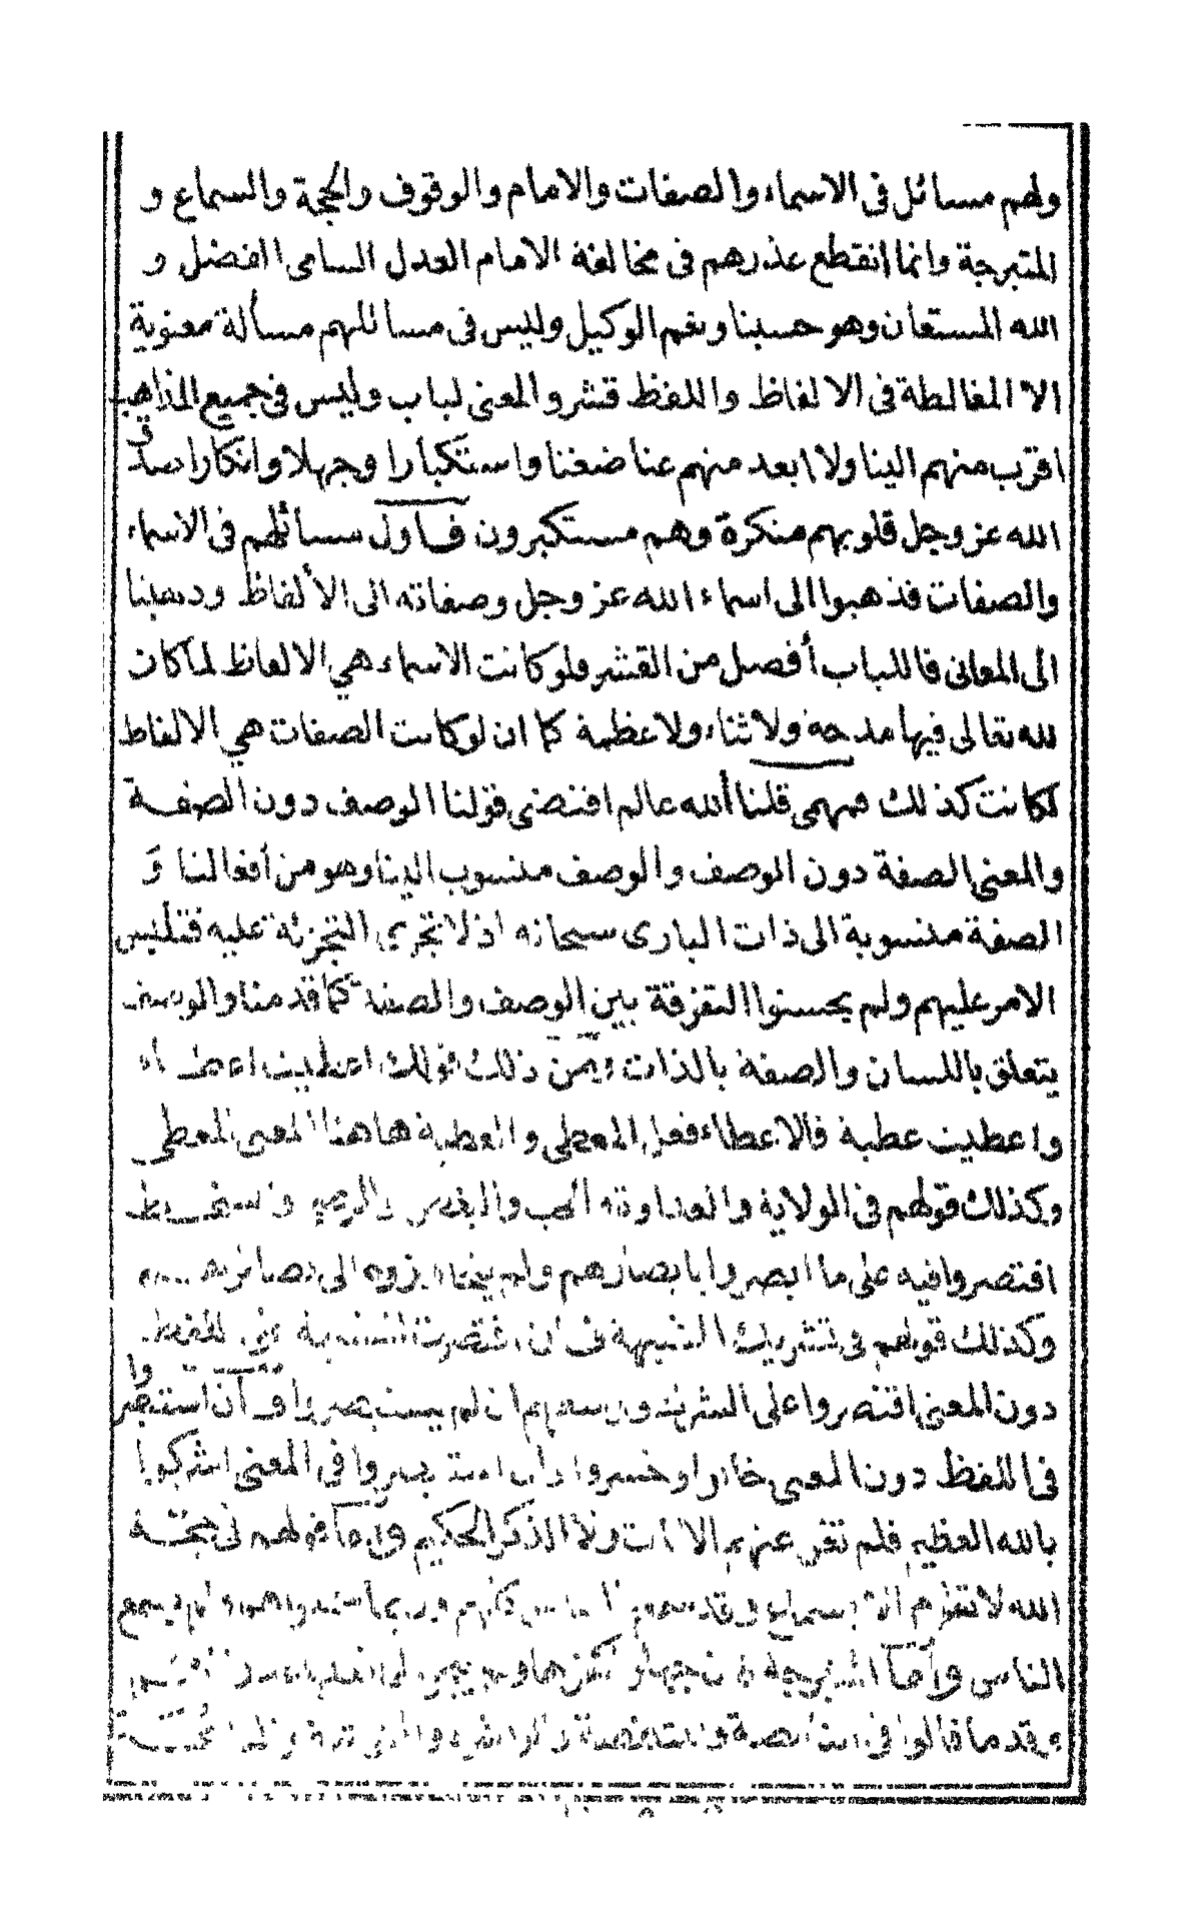 ولهم مسائل فى الاسماء والصفات والامام والوقوف والحجة والسماع و
المتبرجة وانما انقطع عذرهم فى مخالفة الامام العدل السامى الافضل و
الله المستعان وهو حسبنا ونعم الوكيل وليس فى مسائلهم مسألة معنوية
الا المغالطة فى الالفاظ واللفظ قشر والمعنى لباب وليس فى جميع المذاهب
اقرب منهم الينا ولا ابعد منهم عنا ضغنا واستكبارا وجهلا وانكارا صدق
الله عز وجل قلوبهم منكرة وهم مستكبرون فاول مسائلهم فى الاسماء
والصفات فذهبوا الى اسماء الله عز وجل وصفاته الى الألفاظ وذهبنا
الى المعانى فاللباب أفضل من القشر فلو كانت الاسماء هي الالفاظ لما كان
لله تعالى فيها مدحة ولا ثناء ولا عظمة كما ان لو كانت الصفات هي الالفاظ
لكانت كذلك فمهمى قلنا ألله عالم اقتضى قولنا الوصف دون الصفة
والمعنى الصفة دون الوصف والوصف منسوب الينا وهو من أفعالنا وَ
الصفة منسوبة الى ذات البارى سبحانه اذ لا تجرى التجزئة عليه فتلبس
الامر عليهم ولم يحسنوا التفرقة بين الوصف والصفة كما قدمنا والوصف
يتعلق باللسان والصفة بالذات ويمن ذلك قولك اعطيت اعطاء
واعطيت عطية فالاعطاء فعل المعطى والعطية هاهنا المعنى المعطى
وكذلك قولهم فى الولاية والعداوة الحب والبغض والرضى والسخط
اقتصروا فيه على ما ابصروا بابصارهم ولم يتجاوزوه الى بصائرهم
وكذلك قولهم فى تشريك الشبهة فى ان اقتصرت فى اللفظ
دون المعنى اقتصروا على الشرك ان لم يستبصروا وان استبصروا
فى اللفظ دون المعنى خابوا وخسروا وان استبصروا فى المعنى اشركوا
بالله العظيم فلم تغن عنهم الايات ولا الذكر الحكيم وأما قولهم فى حجة
الله لا تقوم الا بسماع وقد وربما لم يسمع
الناس وأما المتبرجة
وقد ما قالوا فى